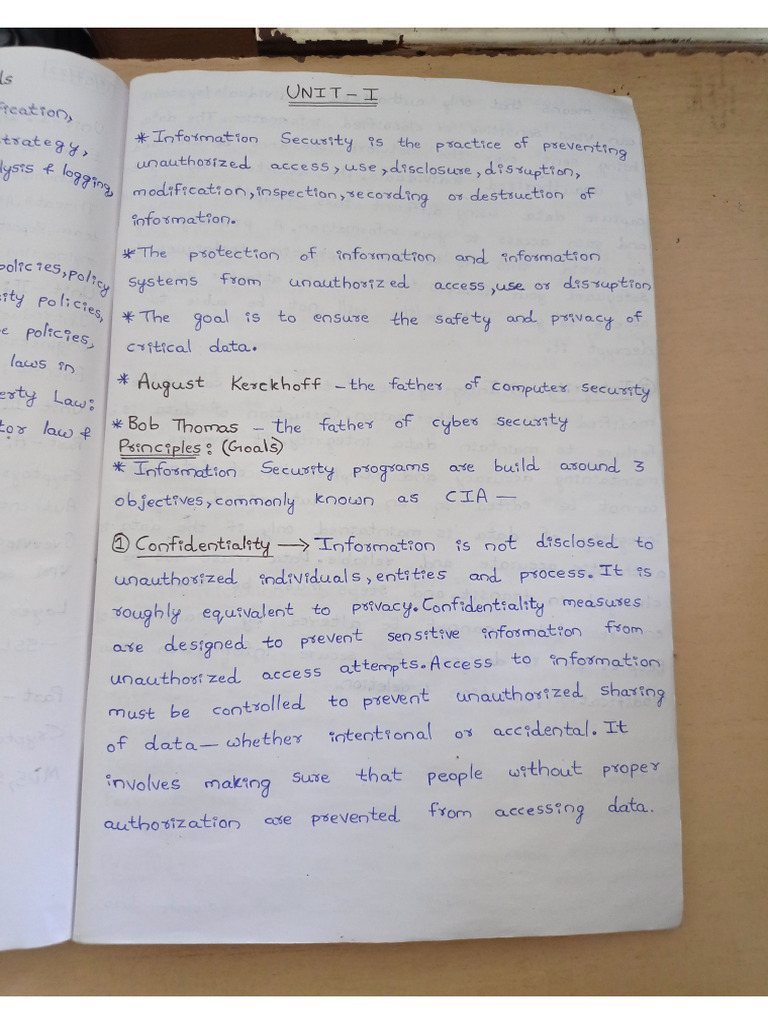 ds
fication,
trategy,
lysis & logging,
policies, policy
ity policies,
e policies,
laws in
erty Law:
tor law &
UNIT-I
* Information Security is the practice of preventing
unauthorized access, use, disclosure, disruption,
modification, inspection, recording or destruction of
information.
* The protection of information and information
systems from unauthorized access, use or disruption
* The goal is to ensure the safety and privacy of
critical data.
* August Kerckhoff - the father of computer security
* Bob Thomas - the father of cyber security
Principles: (Goals)
* Information Security programs are build around 3
objectives, commonly known as CIA —
① Confidentiality → Information is not disclosed to
unauthorized individuals, entities and process. It is
roughly equivalent to privacy. Confidentiality measures
are designed to prevent sensitive information from
unauthorized access attempts. Access to information
must be controlled to prevent unauthorized sharing
of data — whether intentional or accidental. It
involves making sure that people without proper
authorization are prevented from accessing data.